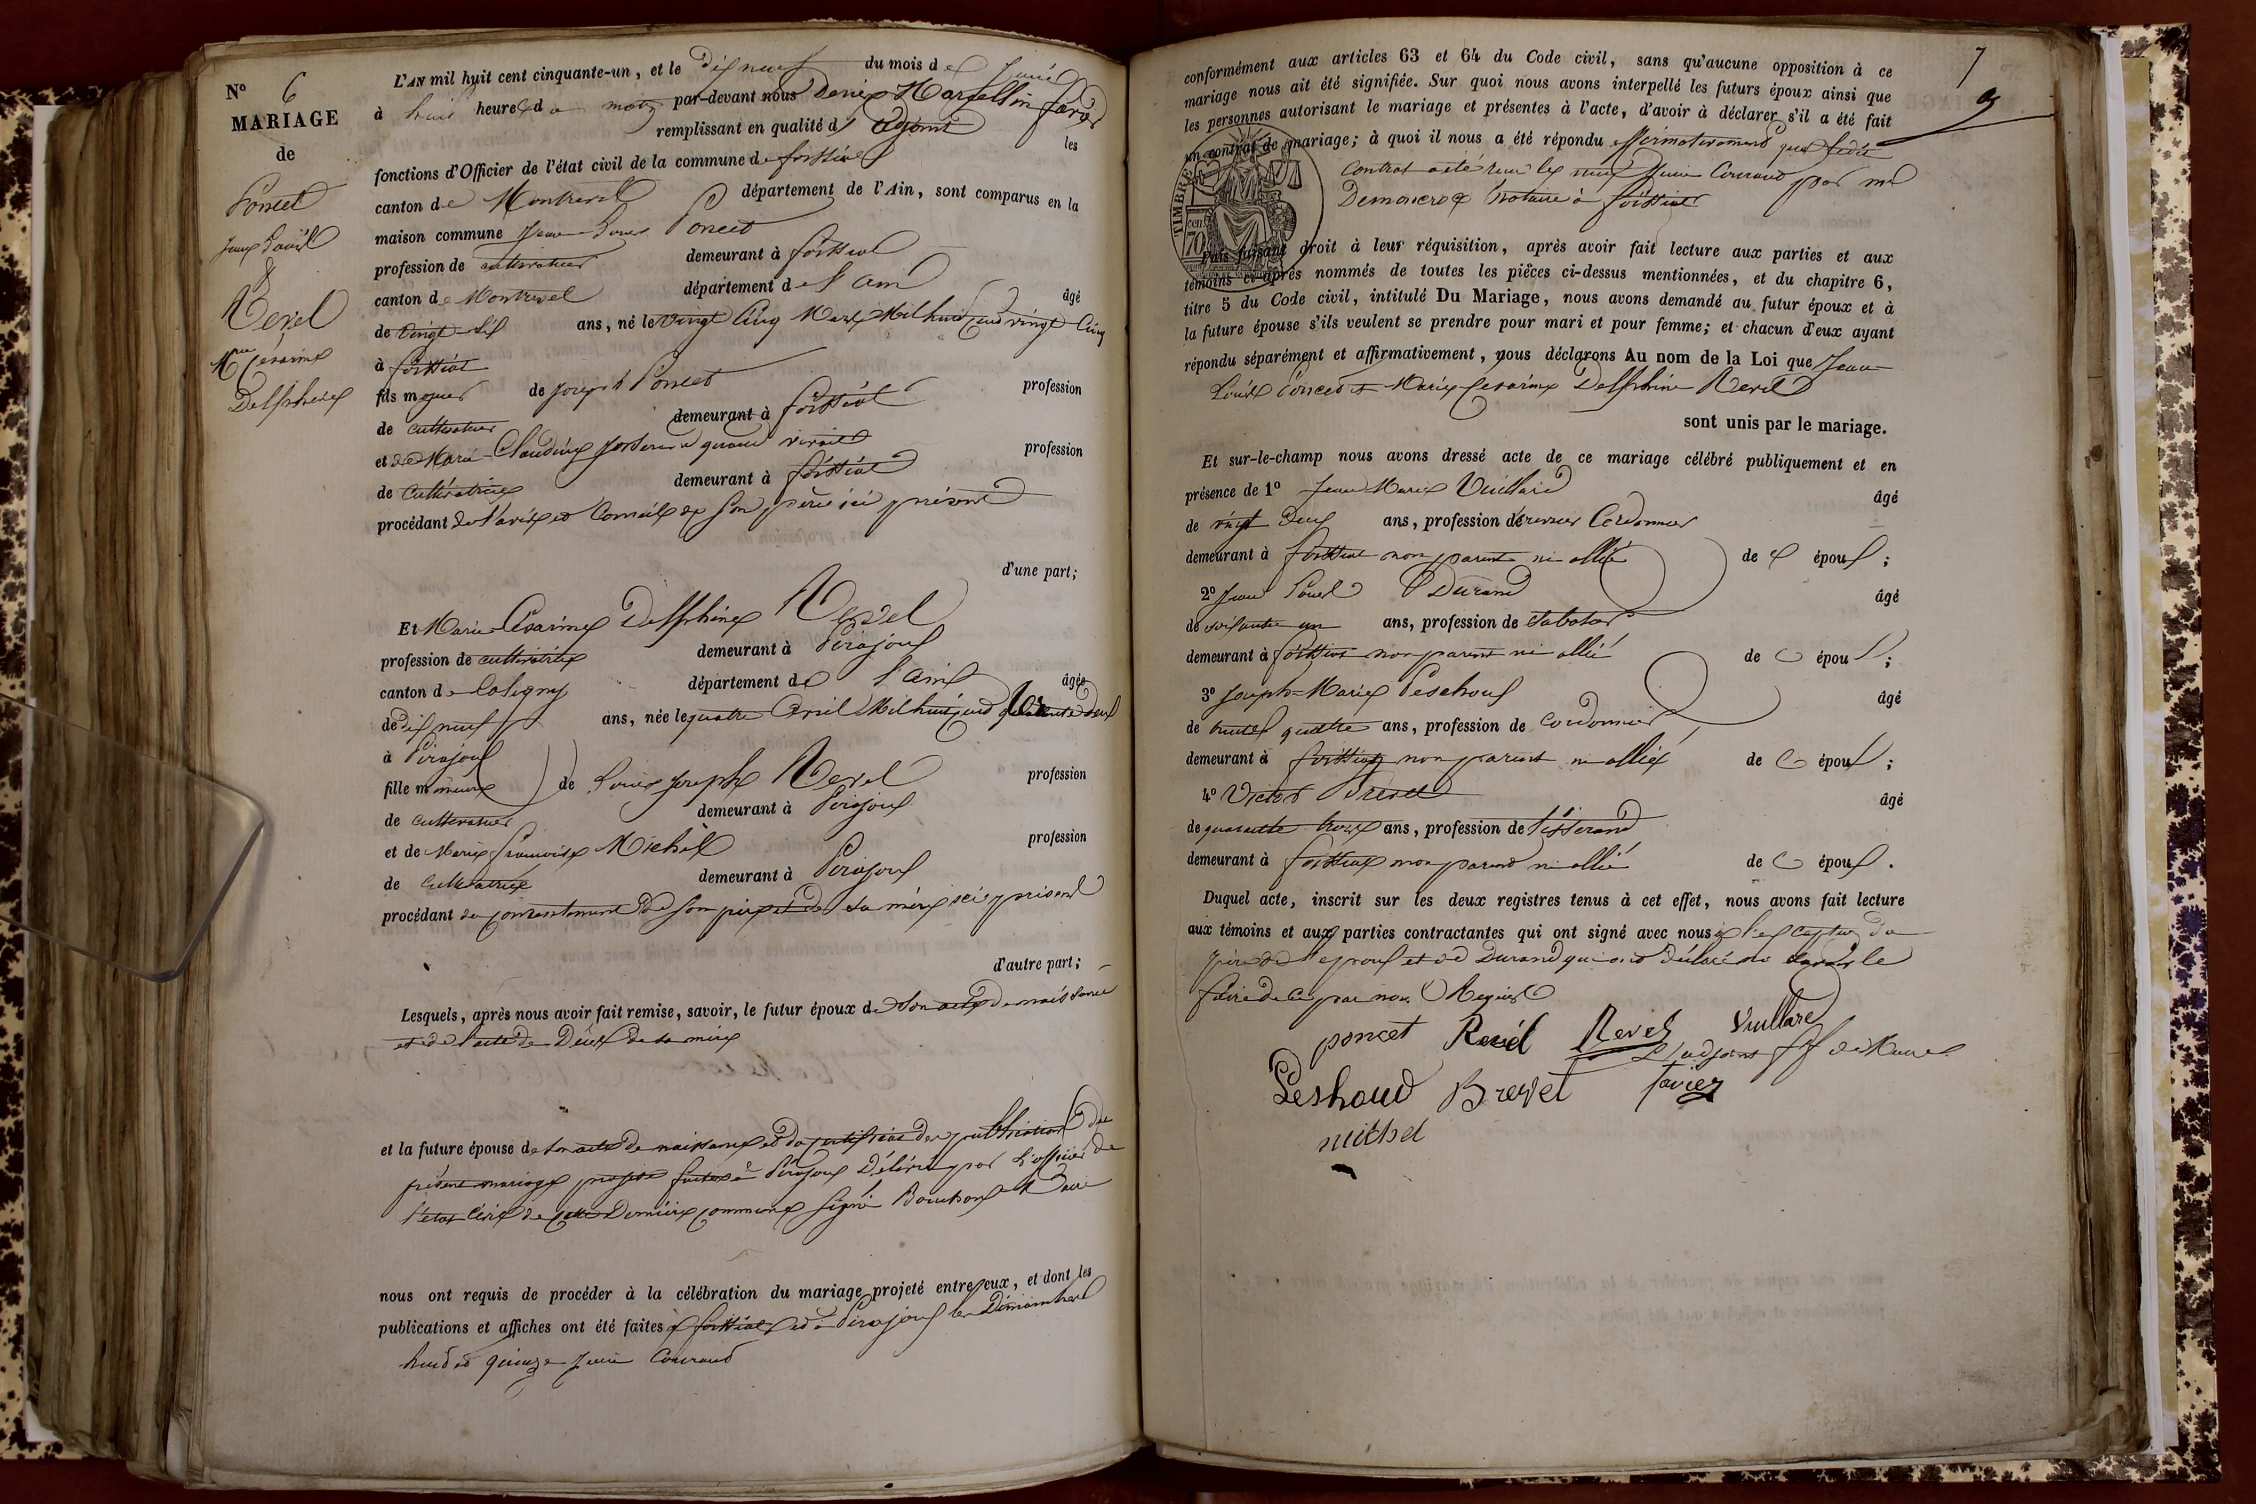 N° 6
MARIAGE
de
Poncet
Jean Louis
&
Revel
Mie Césarine
Delphine
L'AN mil huit cent cinquante-un, et le dix neuf du mois de Juin
à huit heures du matin par-devant nous Denis Marcellin favier
remplissant en qualité d'adjoint les
fonctions d'Officier de l'état civil de la commune de foissiat
canton de Montrevel département de l'Ain, sont comparus en la
maison commune Jean Louis Poncet
profession de cultivateur demeurant à foissiat
canton de Montrevel département de l'ain âgé
de vingt six ans, né le vingt cinq Mars Mil huit cent vingt cinq
à foissiat
fils majeur de Joseph Poncet profession
de cultivateur demeurant à foissiat
et de Marie Claudine quand vivait profession
de cultivatrice demeurant à foissiat
procédant de l'avis et conseil de son père ici présent
d'une part;
Et Marie Césarine Delphine Revel
profession de cultivatrice demeurant à Pirajoux
canton de Coligny département de l'ain âgée
de dix neuf ans, née le quatre avril Mil huit cent deux
à Pirajoux
fille mineure de Louis Joseph Revel profession
de cultivateur demeurant à Pirajoux
et de Marie françoise Michel profession
de cultivatrice demeurant à Pirajoux
procédant du consentement de son père et de sa mère ici présent
d'autre part;
Lesquels, après nous avoir fait remise, savoir, le futur époux de son acte de naissance
et de l'acte de Décès de sa mère
et la future épouse de son acte de naissance et du certificat des publications du
présent mariage projeté faites à Pirajoux Délivré par l'officier de
l'état civil de cette Dernière commune signé Bouchoux Maire
nous ont requis de procéder à la célébration du mariage projeté entre eux, et dont les
publications et affiches ont été faites à foissiat et à Pirajoux les Dimanches
huit et quinze Juin Courant
7
conformément aux articles 63 et 64 du Code civil, sans qu'aucune opposition à ce
mariage nous ait été signifiée. Sur quoi nous avons interpellé les futurs époux ainsi que
les personnes autorisant le mariage et présentes à l'acte, d'avoir à déclarer s'il a été fait
un contrat de mariage; à quoi il nous a été répondu affirmativement que ledit
contrat a été reçu le neuf Juin Courant par me
notaire à foissiat
TIMBRE
70
Puis faisant droit à leur réquisition, après avoir fait lecture aux parties et aux
témoins ci-après nommés de toutes les pièces ci-dessus mentionnées, et du chapitre 6,
titre 5 du Code civil, intitulé Du Mariage, nous avons demandé au futur époux et à
la future épouse s'ils veulent se prendre pour mari et pour femme; et chacun d'eux ayant
répondu séparément et affirmativement, nous déclarons Au nom de la Loi que Jean
Louis Poncet et Marie Césarine Delphine Revel
sont unis par le mariage.
Et sur-le-champ nous avons dressé acte de ce mariage célébré publiquement et en
présence de 1° Jean Marie Vuillard âgé
de vingt Deux ans, profession d'ouvrier Cordonnier
demeurant à foissiat non parent ni allié de époux;
2° Jean Louis Durand âgé
de soixante un ans, profession de sabotier
demeurant à foissiat non parent ni allié de époux;
3° Joseph-Marie Peschoux âgé
de trente quatre ans, profession de cordonnier
demeurant à foissiat non parent ni allié de époux;
4° Victor Brevet âgé
de quarante trois ans, profession de tisserand
demeurant à foissiat non parent ni allié de époux.
Duquel acte, inscrit sur les deux registres tenus à cet effet, nous avons fait lecture
aux témoins et aux parties contractantes qui ont signé avec nous à l'exception du
père de l'époux et de Durand qui ont déclaré ne savoir le
faire de ce par nous Requis
poncet Revel Revel Vuillard
L'adjoint ff de Maire
Peshoud Brevet favier
michel